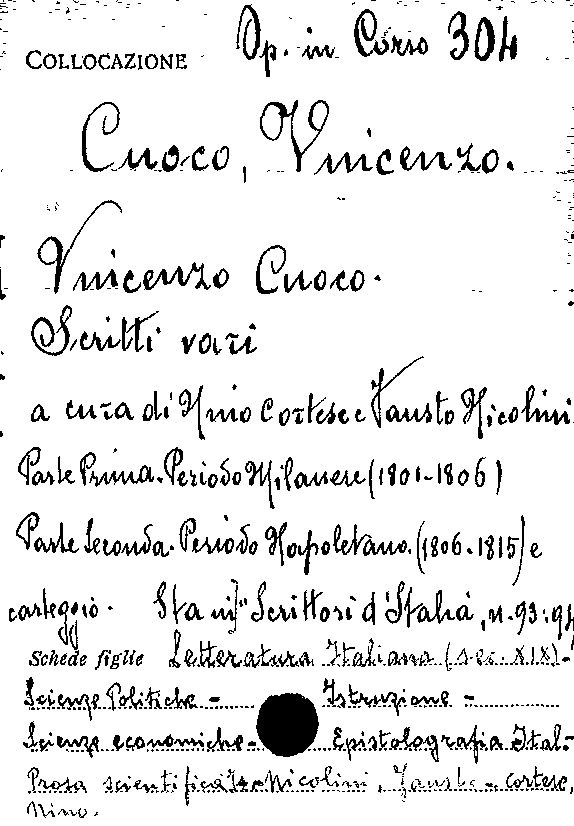 COLLOCAZIONE Op. in Corso 304
Cuoco, Vincenzo.
Vincenzo Cuoco.
Scritti vari
a cura di Nino Cortese e Fausto Nicolini
Parte Prima. Periodo Milanese (1801-1806)
Parte Seconda. Periodo Napoletano. (1806-1815) e
carteggio. Sta in "Scrittori d'Italia, n. 93-94
Schede figlie Letteratura Italiana (sec. XIX)-
Scienze Politiche - Istruzione -
Scienze economiche - Epistolografia Ital.-
Prosa scientifica Nicolini, Fausto - Cortese,
Nino.